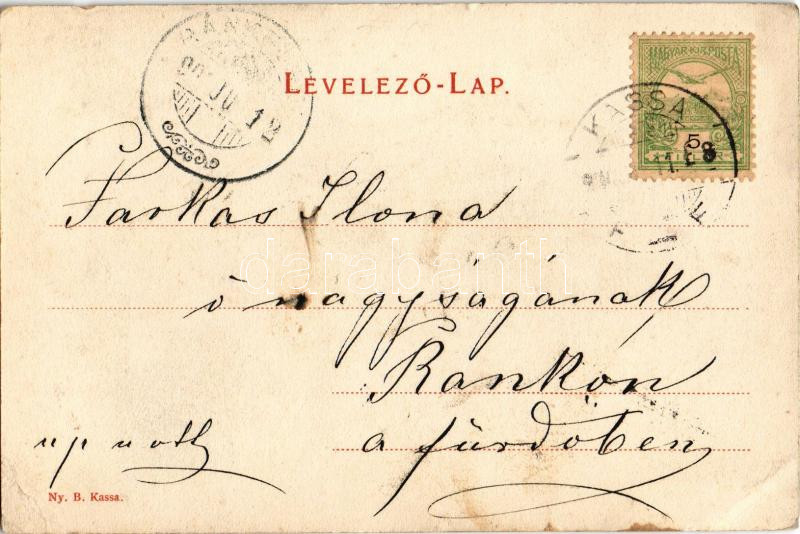 LEVELEZŐ-LAP.
MAGYAR KIR. POSTA
5
KASSA
12
Farkas Ilona
ő nagyságának
Rankón
a fürdőben
darabanth
Ny. B. Kassa.